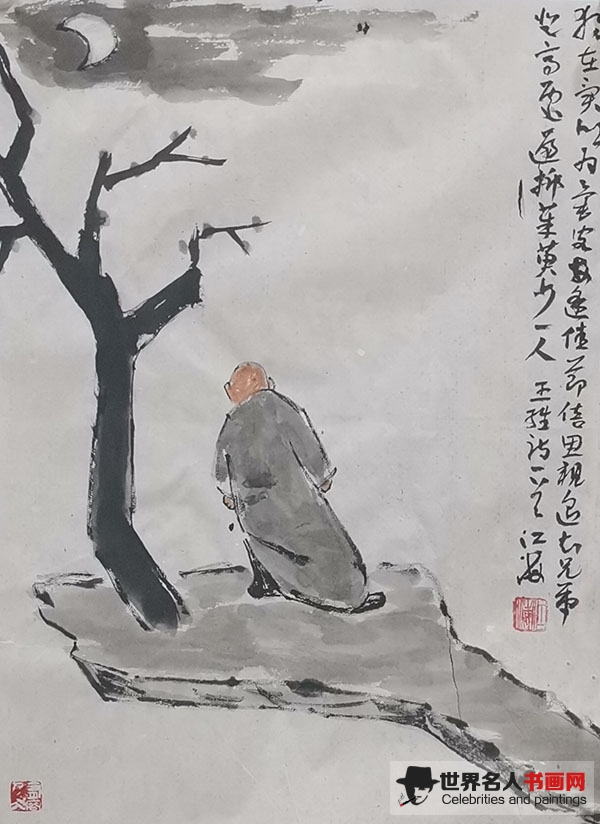 独在异乡为异客每逢佳节倍思親遥知兄弟
登高处遍插茱萸少一人 王维诗一首
世界名人书画网
Celebrities and paintings